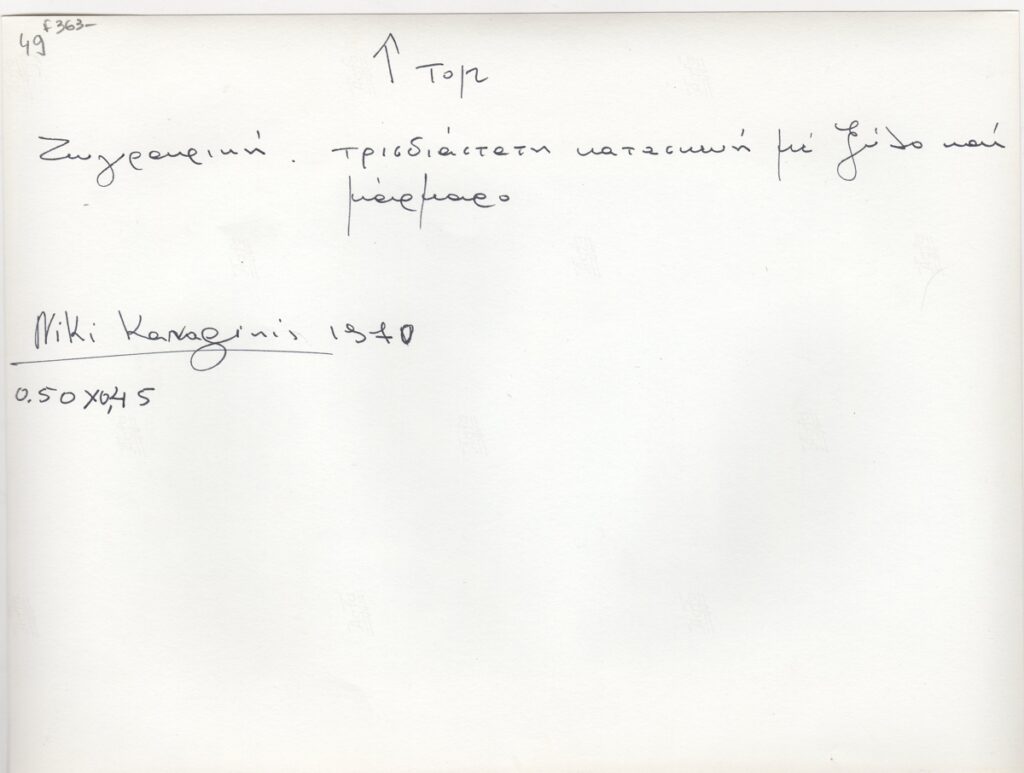 49 f 363-
↑ Top
Ζωγραφική. τρισδιάστατη κατασκευή μέ ξύλο καί
μάρμαρο
Niki Kanaginis 1970
0.50 X 0,45